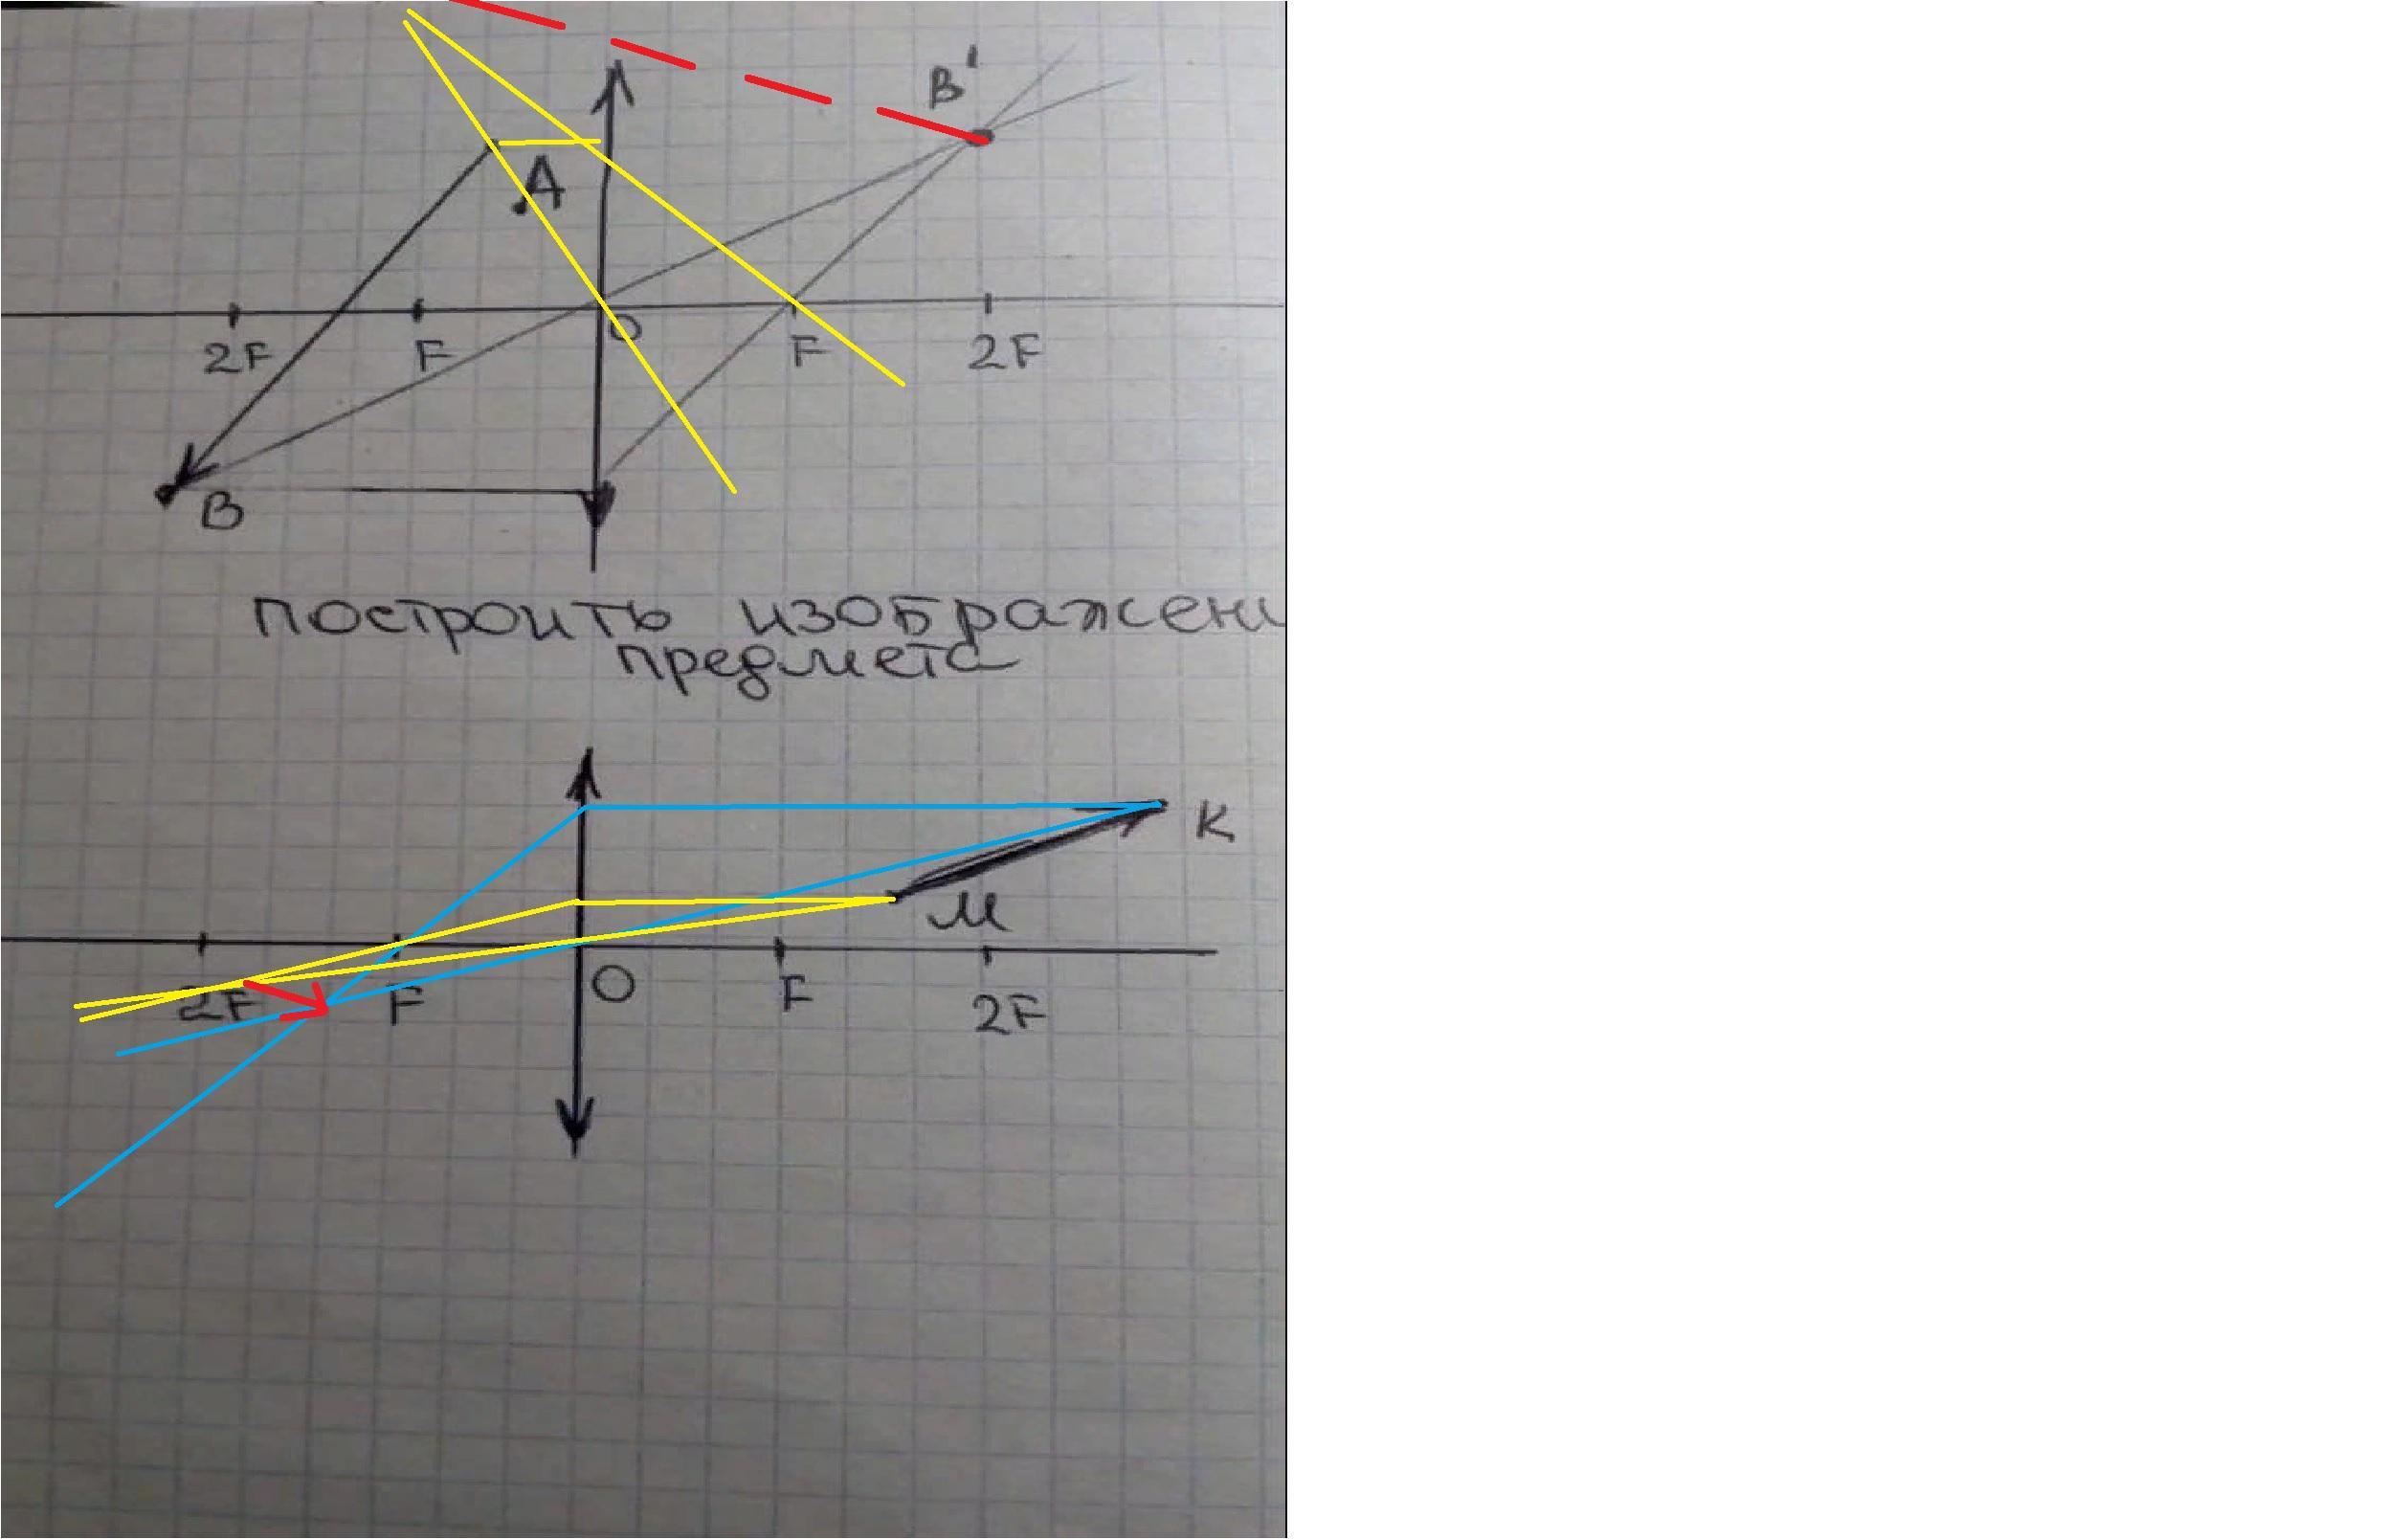 B'
A
2F F O F 2F
B
построить изображени
предмета
K
M
2F F O F 2F